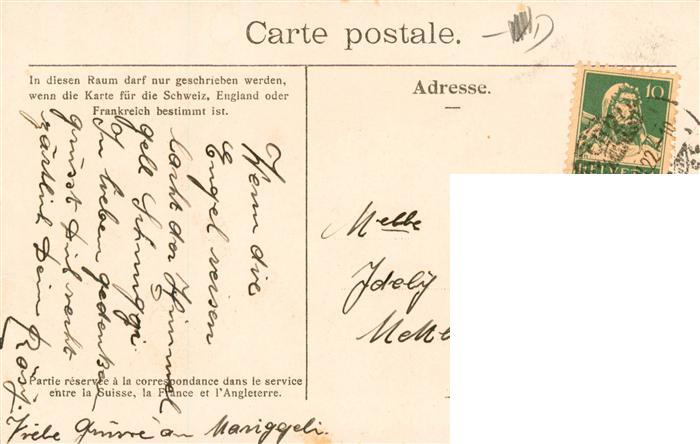 Carte postale.
In diesen Raum darf nur geschrieben werden,
wenn die Karte für die Schweiz, England oder
Frankreich bestimmt ist.
Adresse.
10
HELVETIA
Wenn die
Engel reisen
lacht der Himmel
gell Schnuggi.
In lieben gedenken
grüsst Dich recht
zärtlich Dein
Rösy.
Melle
Idely
Partie réservée à la correspondance dans le service
entre la Suisse, la France et l'Angleterre.
an Mariggeli.